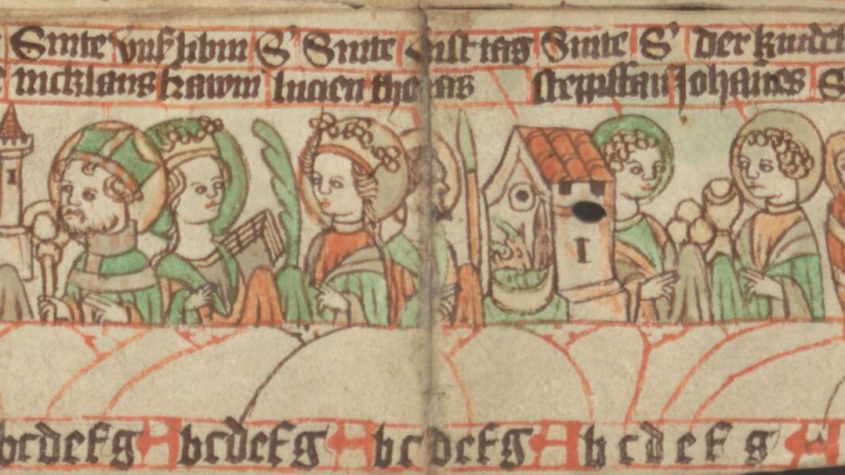 Sinte vnß libin S' Sinte Crist tag Sinte S' der kindel
nicklaus frawin lucien thomas steppffan Johañes S
bcdefg A bcdefg A bcdefg A bcdefg A